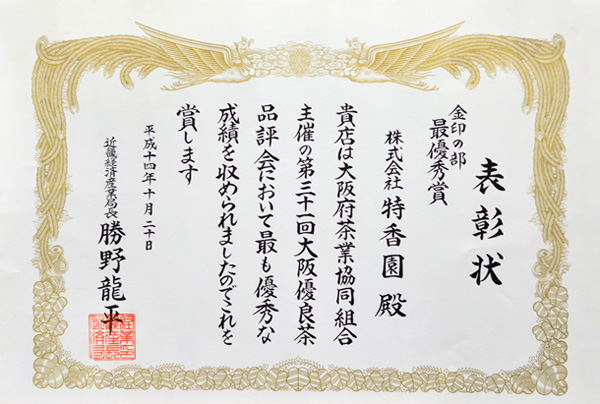 表彰状
金印の部
最優秀賞
株式会社 特香園 殿
貴店は大阪府茶業協同組合
主催の第三十一回大阪優良茶
品評会において最も優秀な
成績を収められましたのでこれを
賞します
平成十四年十月二十日
近畿経済産業局長 勝野龍平